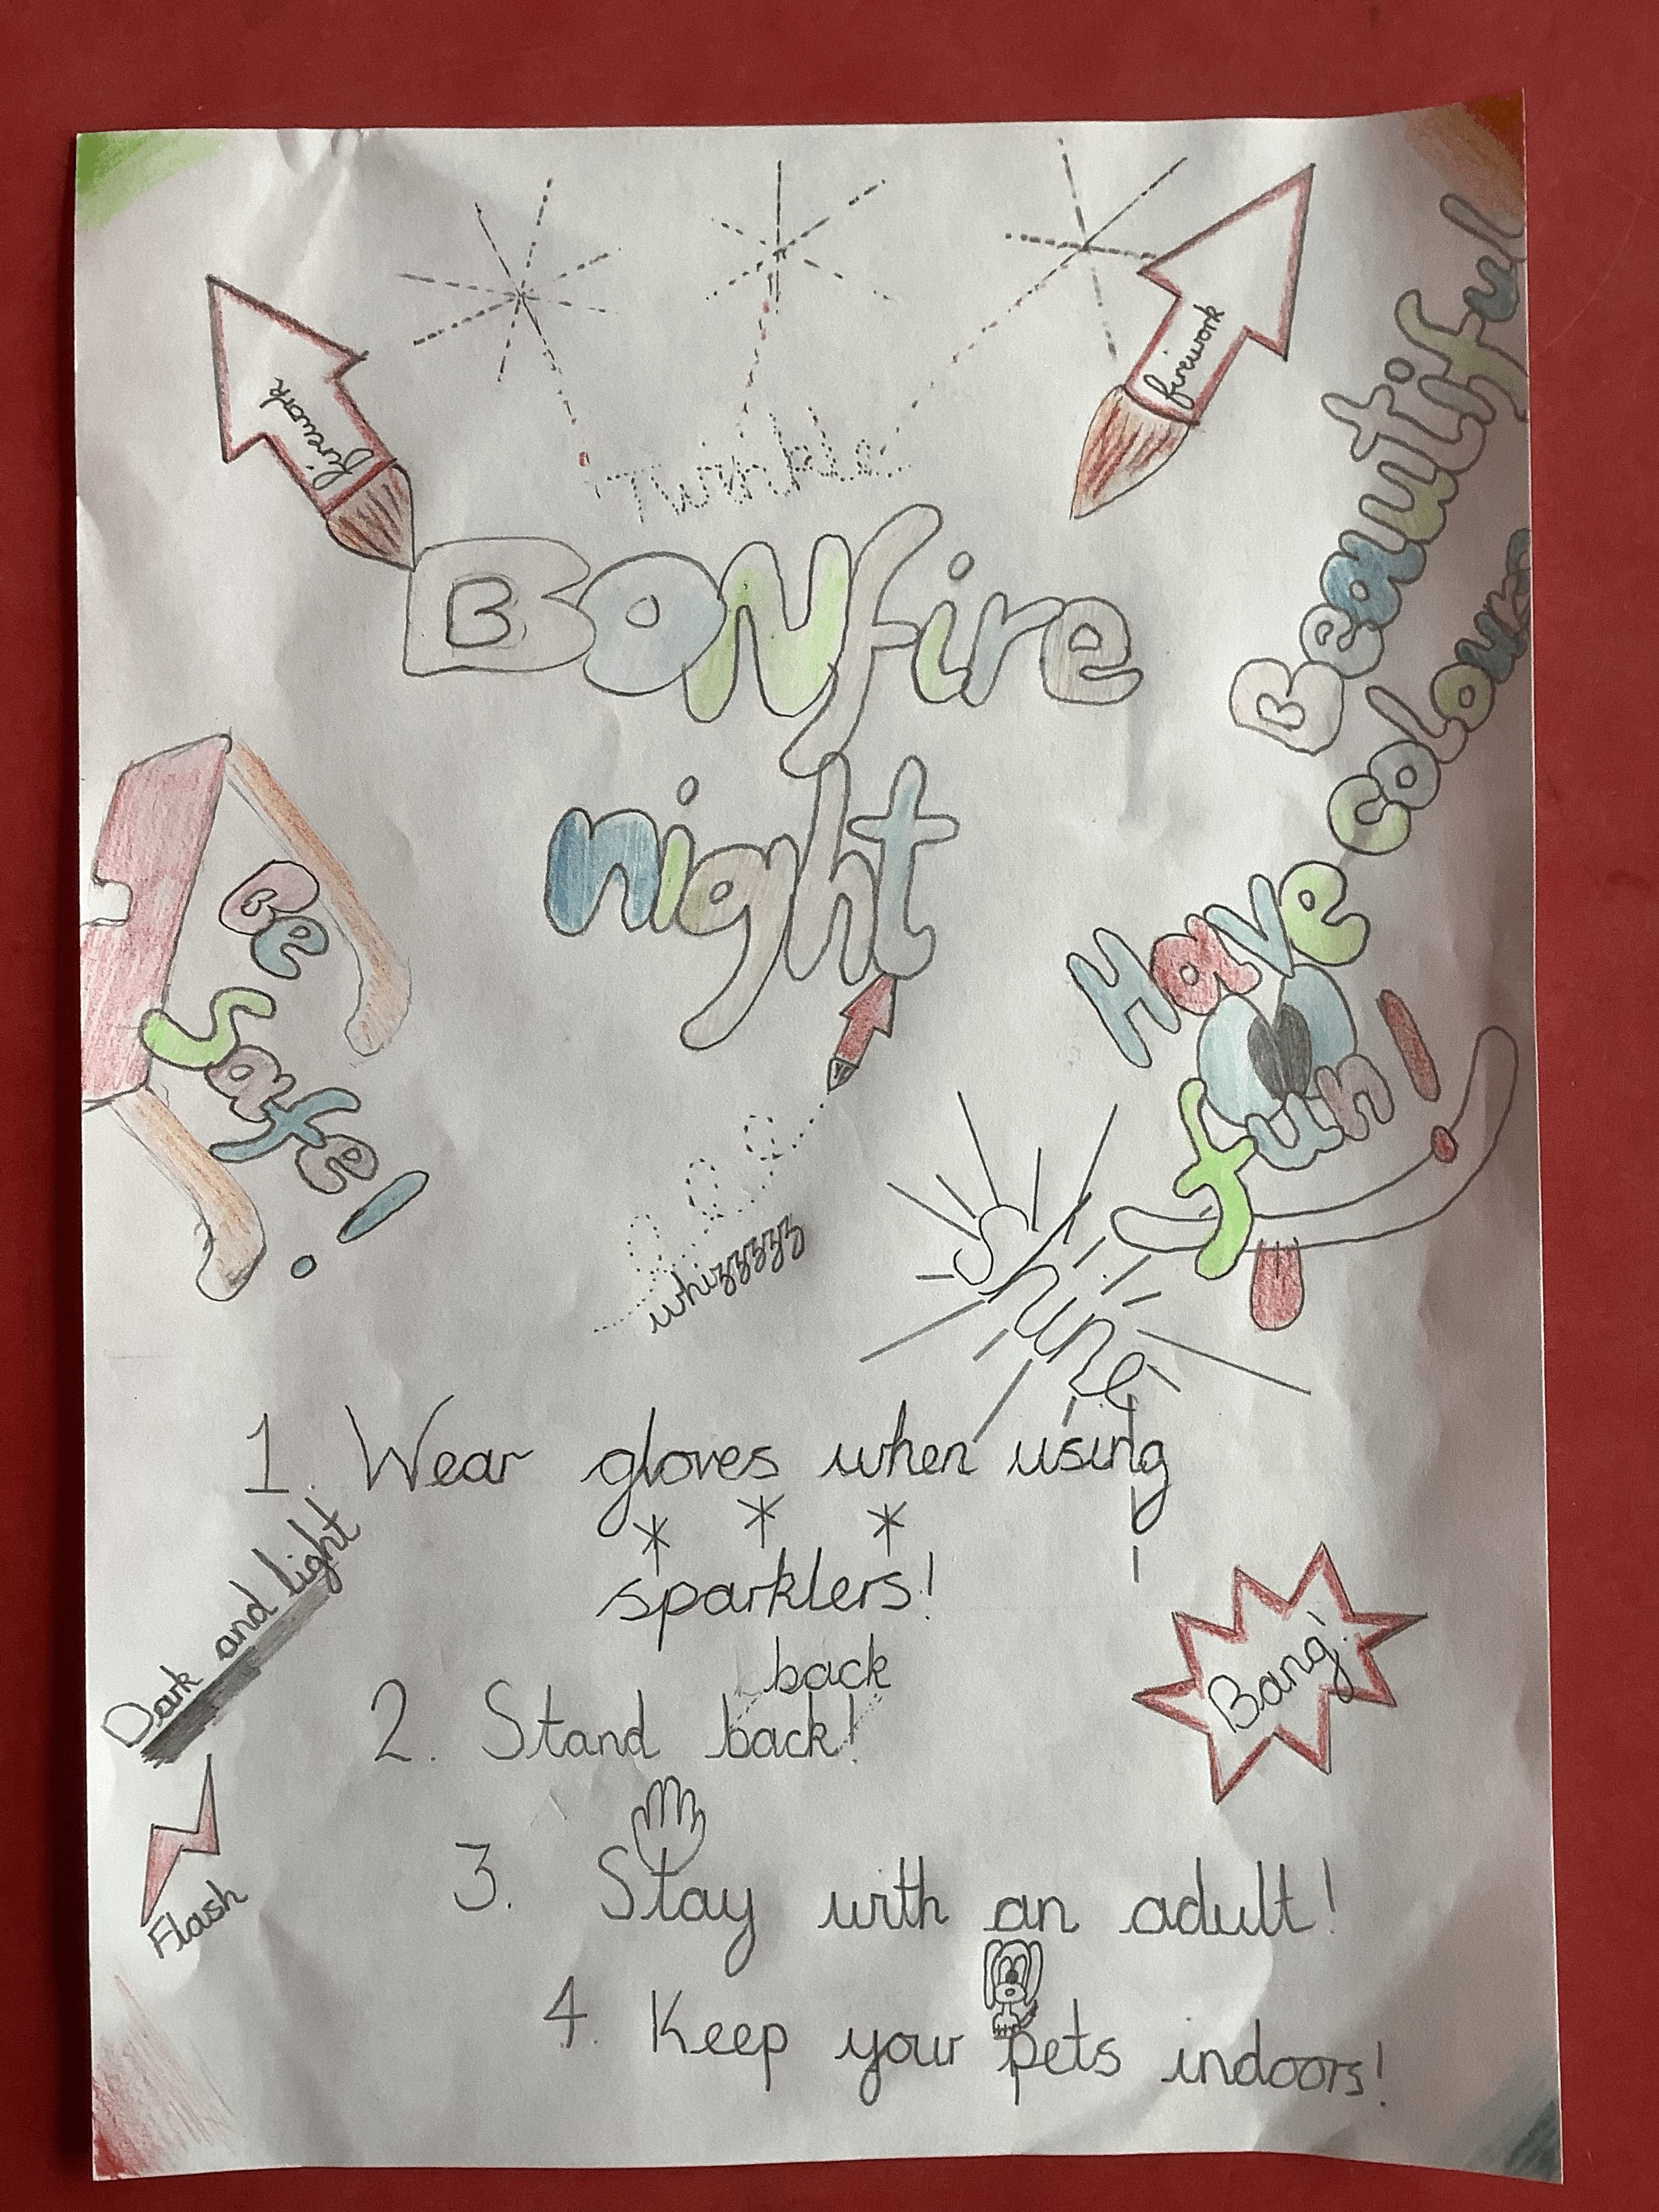 Twinkle
firework
firework
Bonfire
night
Beautiful
colours
Be
Safe!
Have
fun!
whizzzyz
Shine
1. Wear gloves when using
sparklers!
Dark and light
back
2. Stand back!
Bang!
Flash
3. Stay with an adult!
4. Keep your pets indoors!